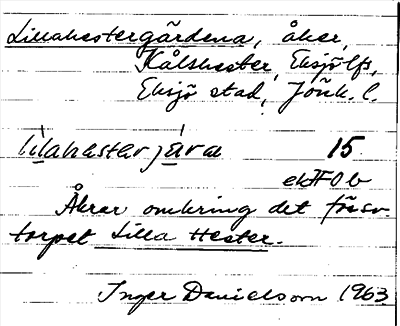 Lillahestergärdena, åker,
Kålshester, Eksjö lfs,
Eksjö stad, Jönk. l.
lilahästarjä̱ra 15
ek℔ 0 b
Åkrar omkring det försv.
torpet Lilla Hester.
Inger Danielsson 1963